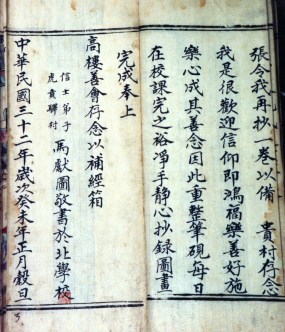 張令我再抄一卷以備　貴村存念
我是很歡迎信仰即鴻福樂善好施
樂心成其善念因此重整筆硯每日
在校課完之裕凈手靜心抄錄圖畫
完成奉上
高樓善會存念以補經箱
信士弟子
虎賁驛村
馬獻圖敬書於北學校
中華民國三十二年歲次癸未年正月穀旦